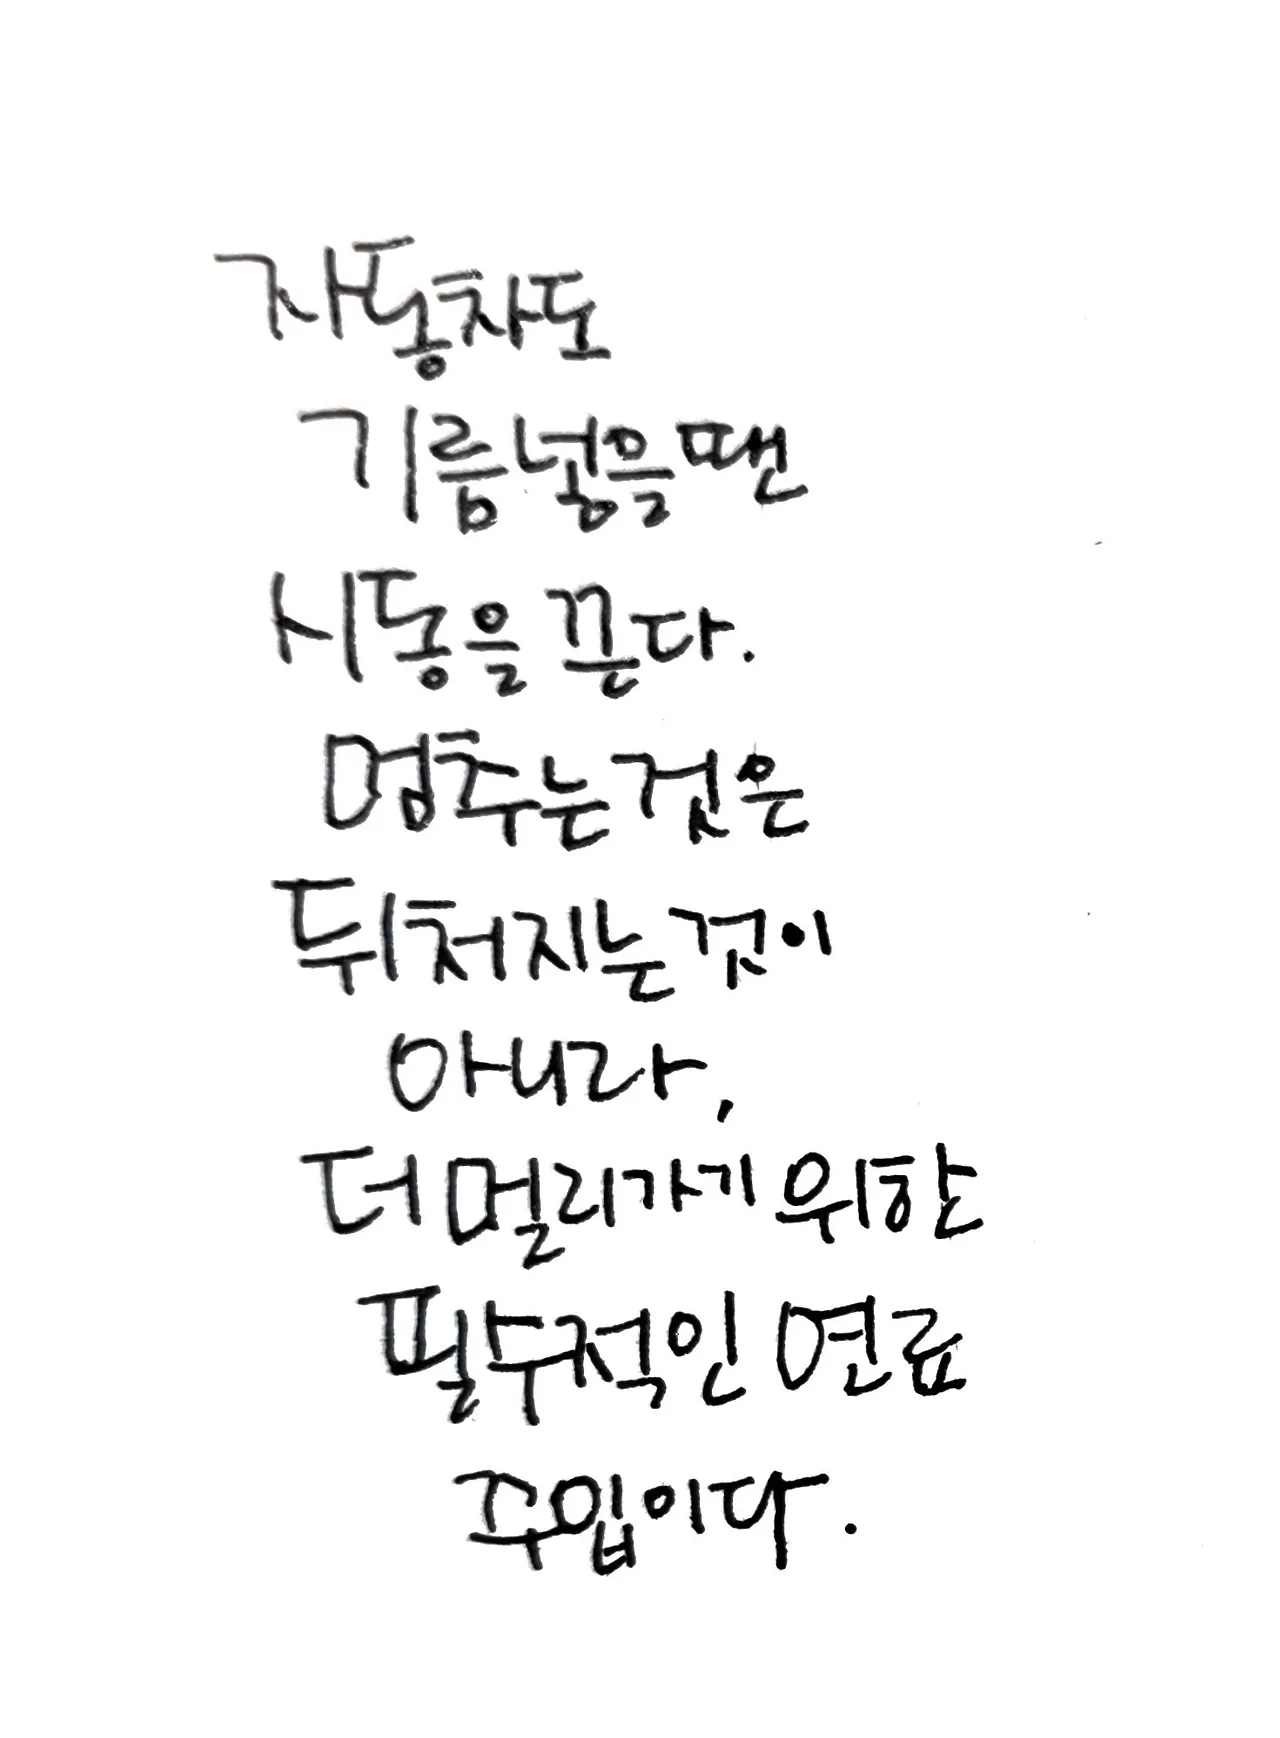 자동차도
기름 넣을 땐
시동을 끈다.
멈추는 것은
뒤처지는 것이
아니라,
더 멀리 가기 위한
필수적인 연료
주입이다.